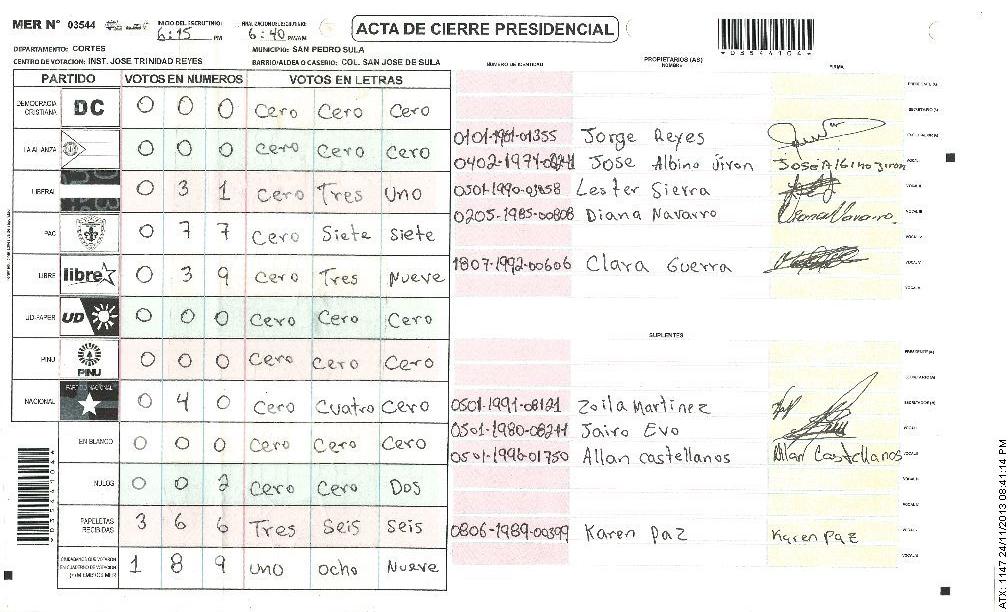 MER N° 03544
INICIO DEL ESCRUTINIO: 6:15 PM
FINALIZACION DE ESCRUTINIO: 6:40 PM/AM
ACTA DE CIERRE PRESIDENCIAL
*0354104*
DEPARTAMENTO: CORTES
MUNICIPIO: SAN PEDRO SULA
CENTRO DE VOTACION: INST. JOSE TRINIDAD REYES
BARRIO/ALDEA O CASERIO: COL. SAN JOSE DE SULA
PARTIDO VOTOS EN NUMEROS VOTOS EN LETRAS
DEMOCRACIA CRISTIANA DC 0 0 0 Cero Cero Cero
LA ALIANZA 0 0 0 Cero Cero Cero
LIBERAL 0 3 1 Cero Tres Uno
PAC 0 7 7 Cero Siete Siete
LIBRE libre 0 3 9 Cero Tres Nueve
UD-FAPER UD 0 0 0 Cero Cero Cero
PINU PINU 0 0 0 Cero Cero Cero
NACIONAL PARTIDO NACIONAL 0 4 0 Cero Cuatro Cero
EN BLANCO 0 0 0 Cero Cero Cero
NULOS 0 0 2 Cero Cero Dos
PAPELETAS RECIBIDAS 3 6 6 Tres Seis Seis
CIUDADANOS QUE VOTARON EN CUADERNO DE VOTACION (+) MIEMBROS MER 1 8 9 Uno Ocho Nueve
PROPIETARIOS (AS)
NÚMERO DE IDENTIDAD NOMBRE FIRMA
PRESIDENTE (A)
SECRETARIO (A)
0101-1961-01355 Jorge Reyes ESCRUTADOR (A)
Jose Albino Jiron Jose Albino Jiron VOCAL I
Lester Sierra VOCAL II
0205-1985-00808 Diana Navarro Diana Navarro VOCAL III
VOCAL IV
1807-1992-00606 Clara Guerra VOCAL V
SUPLENTES
PRESIDENTE (A)
SECRETARIO (A)
0501-1991-08121 Zoila Martinez ESCRUTADOR (A)
Jairo Evo VOCAL I
0501-1996-01750 Allan Castellanos Allan Castellanos
0806-1989-00399 Karen Paz Karen Paz
*0354104*
ATX: 1147 24/11/2013 08:41:14 PM